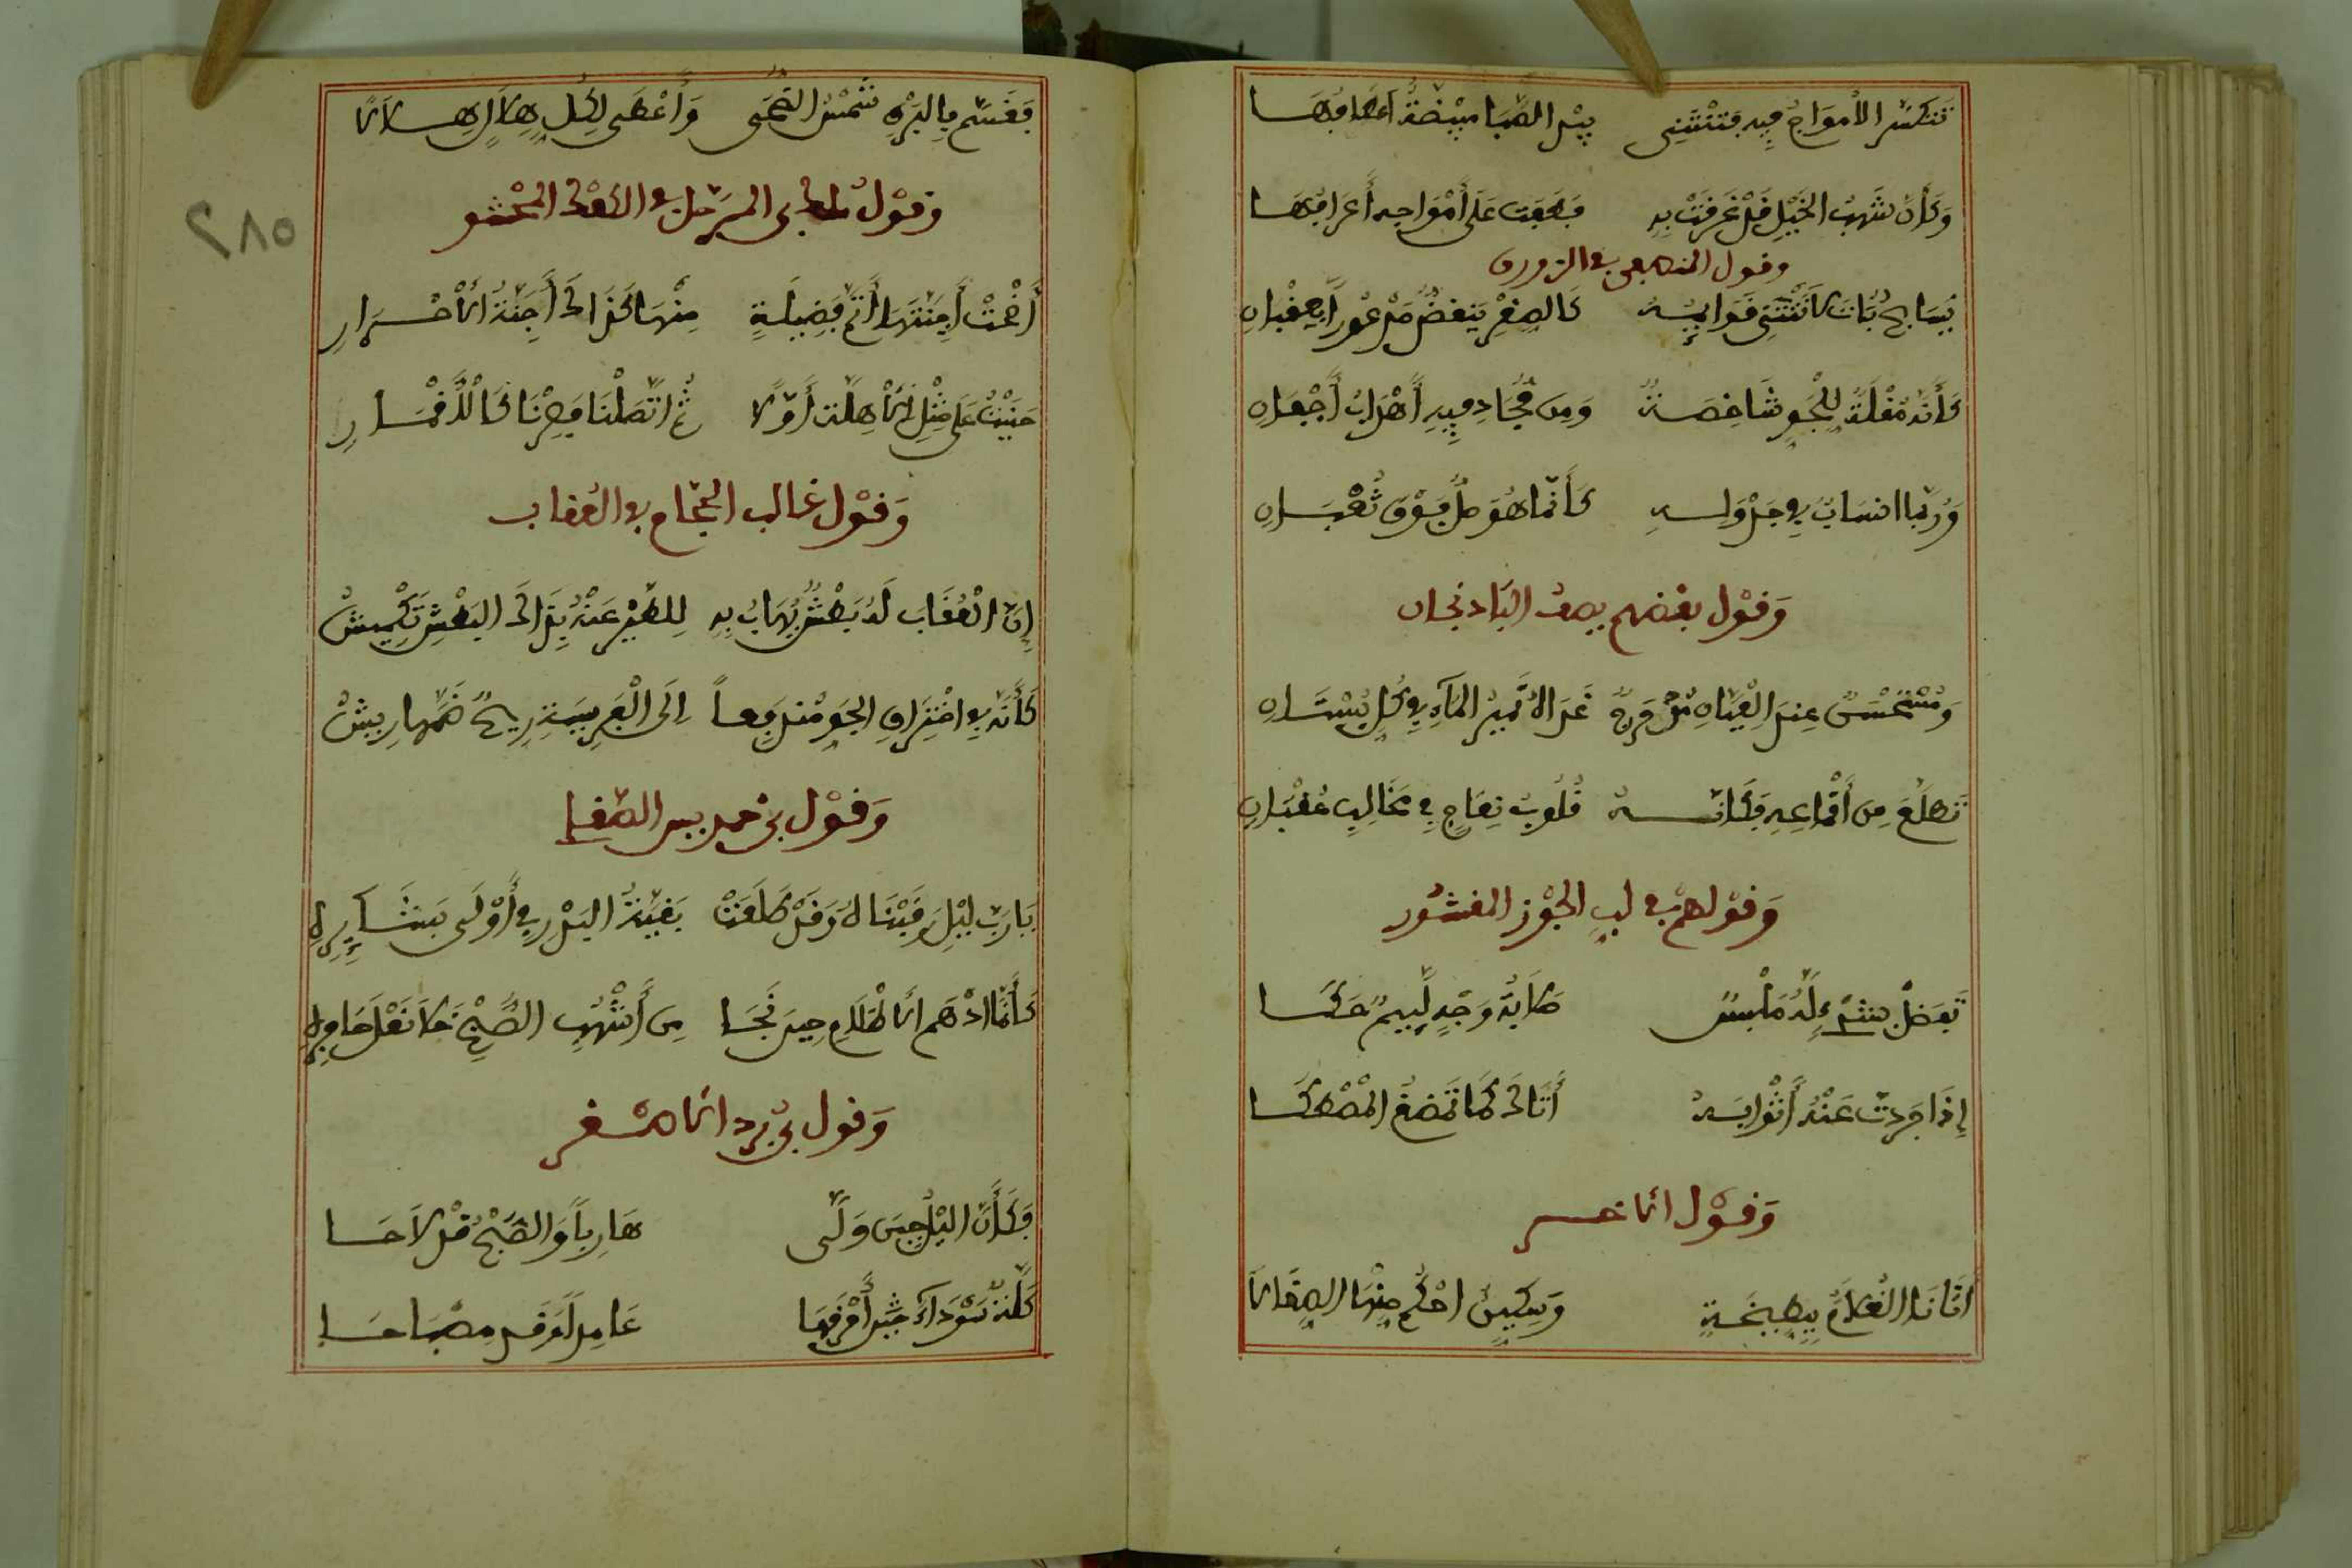 تتكسر الأمواج فيه فتنثني بيد الصبا مبيضة أعطافها
وكأن شهب الخيل قد غرقت به فطفت على أمواجه أعرافها
وقول المنصفي في الزورق
وسابح بات لا تثنى قوائمه كالصقر ينقض مذعورا بعقبان
كأنه مقلة للجو شاخصة ومن مجاديفه أهداب أجفان
وربما انساب في جدوله كأنما هو صل فوق ثعبان
وقول بعضهم يصف الباذنجان
ومستحسن عند العيان مدحرج غذاه نمير الماء في كل بستان
تطلع من أقماعه فكأنه قلوب نعاج في مخالب عقبان
وقولهم في لب الجوز المقشور
تفضل بشيء له ملبس وجه لئيم حكا
إذا جردت عنه أثوابه أتاك كما تمضغ المصطكا
وقول الأخر
أتانا الغلام ببطيخة وسكين احكم منها الصقالا
فقسم بالبرق شمس الضحى وأعطى لكل هلال هلالا
وقول في الكعك المحشو
أضحت أجنتها أتم فضيلة منها كذاك أجنة الأحرار
حنيت على مثل الأهلة أولا ثم اتصلنا فصرنا كالأقمار
وقول غالب الحجام في العقاب
إن العقاب له بطش يهاب به للطير عنه بذاك البطش تكميش
كأنه في اختراق الجو مندفعا إلى الفريسة ريح ضمها ريش
وقول بن حمديس الصقلي
يا رب ليل رقبناه وقد طلعت بقية البدر في أولى بشائره
كأنما ادهم الأظلام حين نجا من أشهب الصبح نعل حافره
وقول بن برد الأصغر
وكأن اليل حين ولى هاربا والصبح قد لاحا
كلة سوداء حين أحرقها عامدا وقد مصباحا
٢٨٥